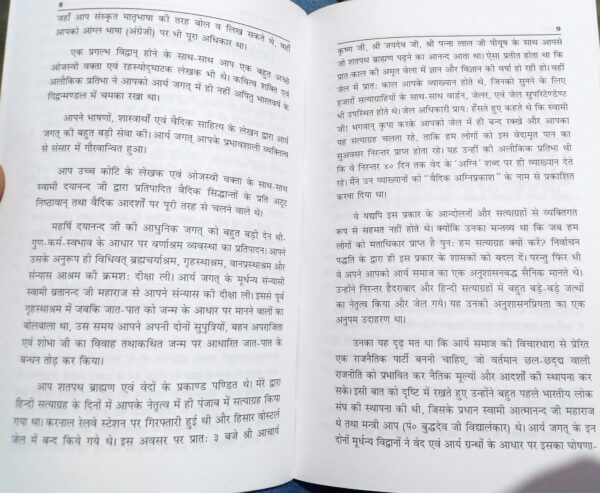 8
जहाँ आप संस्कृत मातृभाषा की तरह बोल व लिख सकते थे, वहाँ
आपको आंग्ल भाषा (अंग्रेजी) पर भी पूरा अधिकार था।
एक प्रगल्भ विद्वान् होने के साथ-साथ आप एक बहुत अच्छे
ओजस्वी वक्ता एवं रहस्योद्घाटक लेखक भी थे। कवित्व शक्ति एवं
अलौकिक प्रतिभा ने आपको आर्य जगत् में ही नहीं अपितु भारतवर्ष के
विद्वन्मण्डल में चमका रखा था।
आपने भाषणों, शास्त्रार्थों एवं वैदिक साहित्य के लेखन द्वारा आर्य
जगत् की बहुत बड़ी सेवा की। आर्य जगत् आपके प्रभावशाली व्यक्तित्व
से संसार में गौरवान्वित हुआ।
आप उच्च कोटि के लेखक एवं ओजस्वी वक्ता के साथ-साथ
स्वामी दयानन्द जी द्वारा प्रतिपादित वैदिक सिद्धान्तों के प्रति अटूट
निष्ठावान् तथा वैदिक आदर्शों पर पूरी तरह से चलने वाले थे।
महर्षि दयानन्द जी की आधुनिक जगत् को बहुत बड़ी देन थी-
गुण-कर्म-स्वभाव के आधार पर वर्णाश्रम व्यवस्था का प्रतिपादन। आपने
उसके अनुरूप ही विधिवत् ब्रह्मचर्याश्रम, गृहस्थाश्रम, वानप्रस्थाश्रम और
संन्यास आश्रम की क्रमशः दीक्षा ली। आर्य जगत् के मूर्धन्य संन्यासी
स्वामी व्रतानन्द जी महाराज से आपने संन्यास की दीक्षा ली। इससे पूर्व
गृहस्थाश्रम में जबकि जात-पात को जन्म के आधार पर मानने वालों का
बोलबाला था, उस समय आपने अपनी दोनों सुपुत्रियों, बहन अपराजिता
एवं शोभा जी का विवाह तथाकथित जन्म पर आधारित जात-पात के
बन्धन तोड़ कर किया।
आप शतपथ ब्राह्मण एवं वेदों के प्रकाण्ड पण्डित थे। मेरे द्वारा
हिन्दी सत्याग्रह के दिनों में आपके नेतृत्व में ही पंजाब में सत्याग्रह किया
गया था। करनाल रेलवे स्टेशन पर गिरफ्तारी हुई थी और हिसार वोस्टर्ल
जेल में बन्द किये गये थे। इस अवसर पर प्रातः ३ बजे श्री आचार्य
9
कृष्ण जी, श्री जयदेव जी, श्री पन्ना लाल जी पीयूष के साथ आपसे
जो शतपथ ब्राह्मण पढ़ने का आनन्द आता था। ऐसा प्रतीत होता था कि
प्रातःकाल की अमृत वेला में ज्ञान और विज्ञान की वर्षा हो रही हो। वहाँ
जेल में प्रातः काल आपके व्याख्यान होते थे, जिनको सुनने के लिए
हजारों सत्याग्रहियों के साथ-साथ वार्डन, जेलर, एवं जेल सुपरिटेण्डेण्ट
भी उपस्थित होते थे। जेल अधिकारी प्रायः हँसते हुए कहते थे कि स्वामी
जी! भगवान् कृपा करके आपको जेल में ही बन्द रखखे और आपका
यह सत्याग्रह चलता रहे, ताकि हम लोगों को इस वेदामृत पान का
सुअवसर निरन्तर प्राप्त होता रहे। यह उन्हीं की अलौकिक प्रतिभा थी
कि वे निरन्तर ४० दिन तक वेद के 'अग्नि' शब्द पर ही व्याख्यान देते
रहे। मैंने उन व्याख्यानों को "वैदिक अग्निप्रकाश" के नाम से प्रकाशित
करवा दिया था।
ये यद्यपि इस प्रकार के आन्दोलनों और सत्याग्रहों से व्यक्तिगत
रूप से सहमत नहीं होते थे। क्योंकि उनका मन्तव्य था कि जब हम
लोगों को मताधिकार प्राप्त है पुनः हम सत्याग्रह क्यों करें? निर्वाचन
पद्धति के द्वारा ही इस प्रकार के शासकों को बदल दें। परन्तु फिर भी
वे अपने आपको आर्य समाज का एक अनुशासनबद्ध सैनिक मानते थे।
उन्होंने निरन्तर हैदराबाद और हिन्दी सत्याग्रहों में बहुत बड़े-बड़े जत्थों
का नेतृत्व किया और जेल गये। यह उनकी अनुशासनप्रियता का एक
अनुपम उदाहरण था।
उनका यह दृढ़ मत था कि आर्य समाज की विचारधारा से प्रेरित
एक राजनैतिक पार्टी बननी चाहिए, जो वर्तमान छल-छद्म वाली
राजनीति को प्रभावित कर नैतिक मूल्यों और आदर्शों की स्थापना कर
सके। इसी बात को दृष्टि में रखते हुए उन्होंने बहुत पहले भारतीय लोक
संघ की स्थापना की थी, जिसके प्रधान स्वामी आत्मानन्द जी महाराज
थे तथा मन्त्री आप (पं० बुद्धदेव जी विद्यालंकार) थे। आर्य जगत् के इन
दोनों मूर्धन्य विद्वानों ने वेद एवं आर्य ग्रन्थों के आधार पर इसका घोषणा-